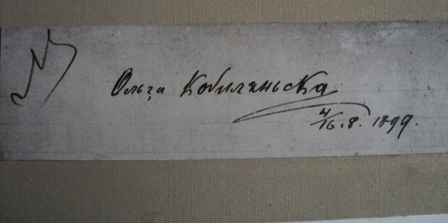 Ольга Кобилянська
4/16.8.1899.